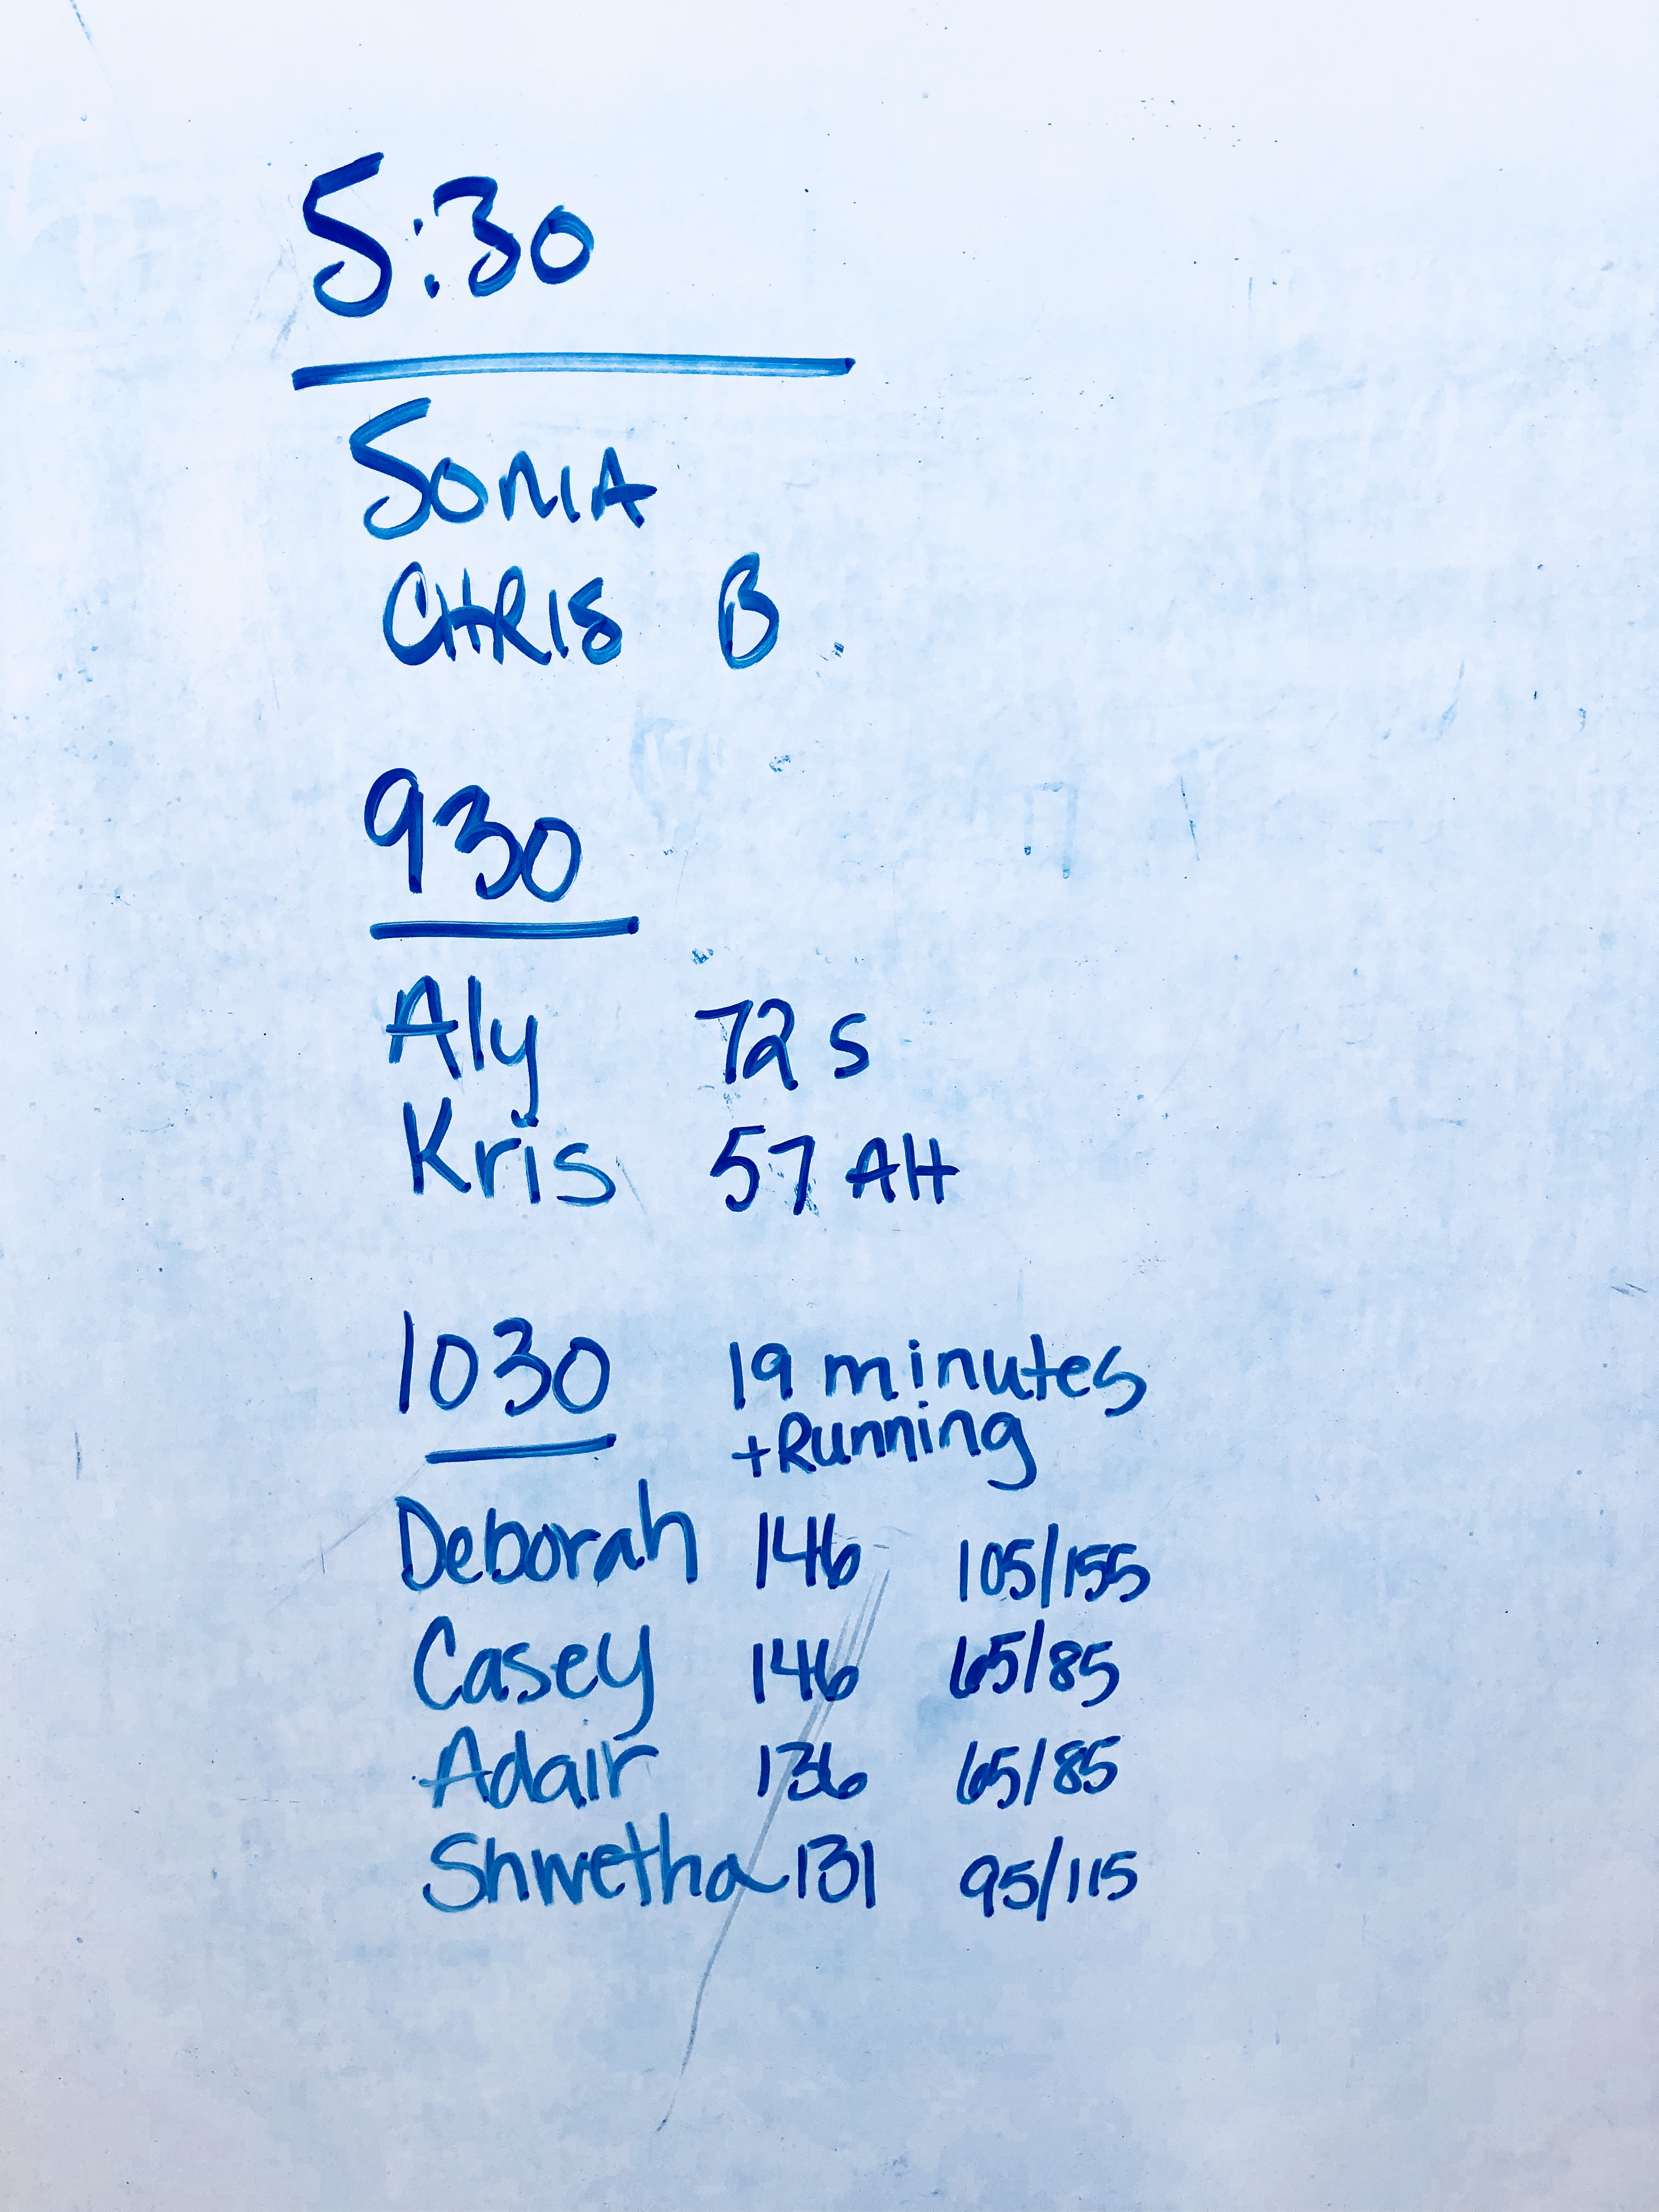 5:30
SONIA
CHRIS B
930
Aly 72 S
Kris 57 AH
1030 19 minutes
+Running
Deborah 146 105/155
Casey 146 65/85
Adair 136 65/85
Shwetha 131 95/115